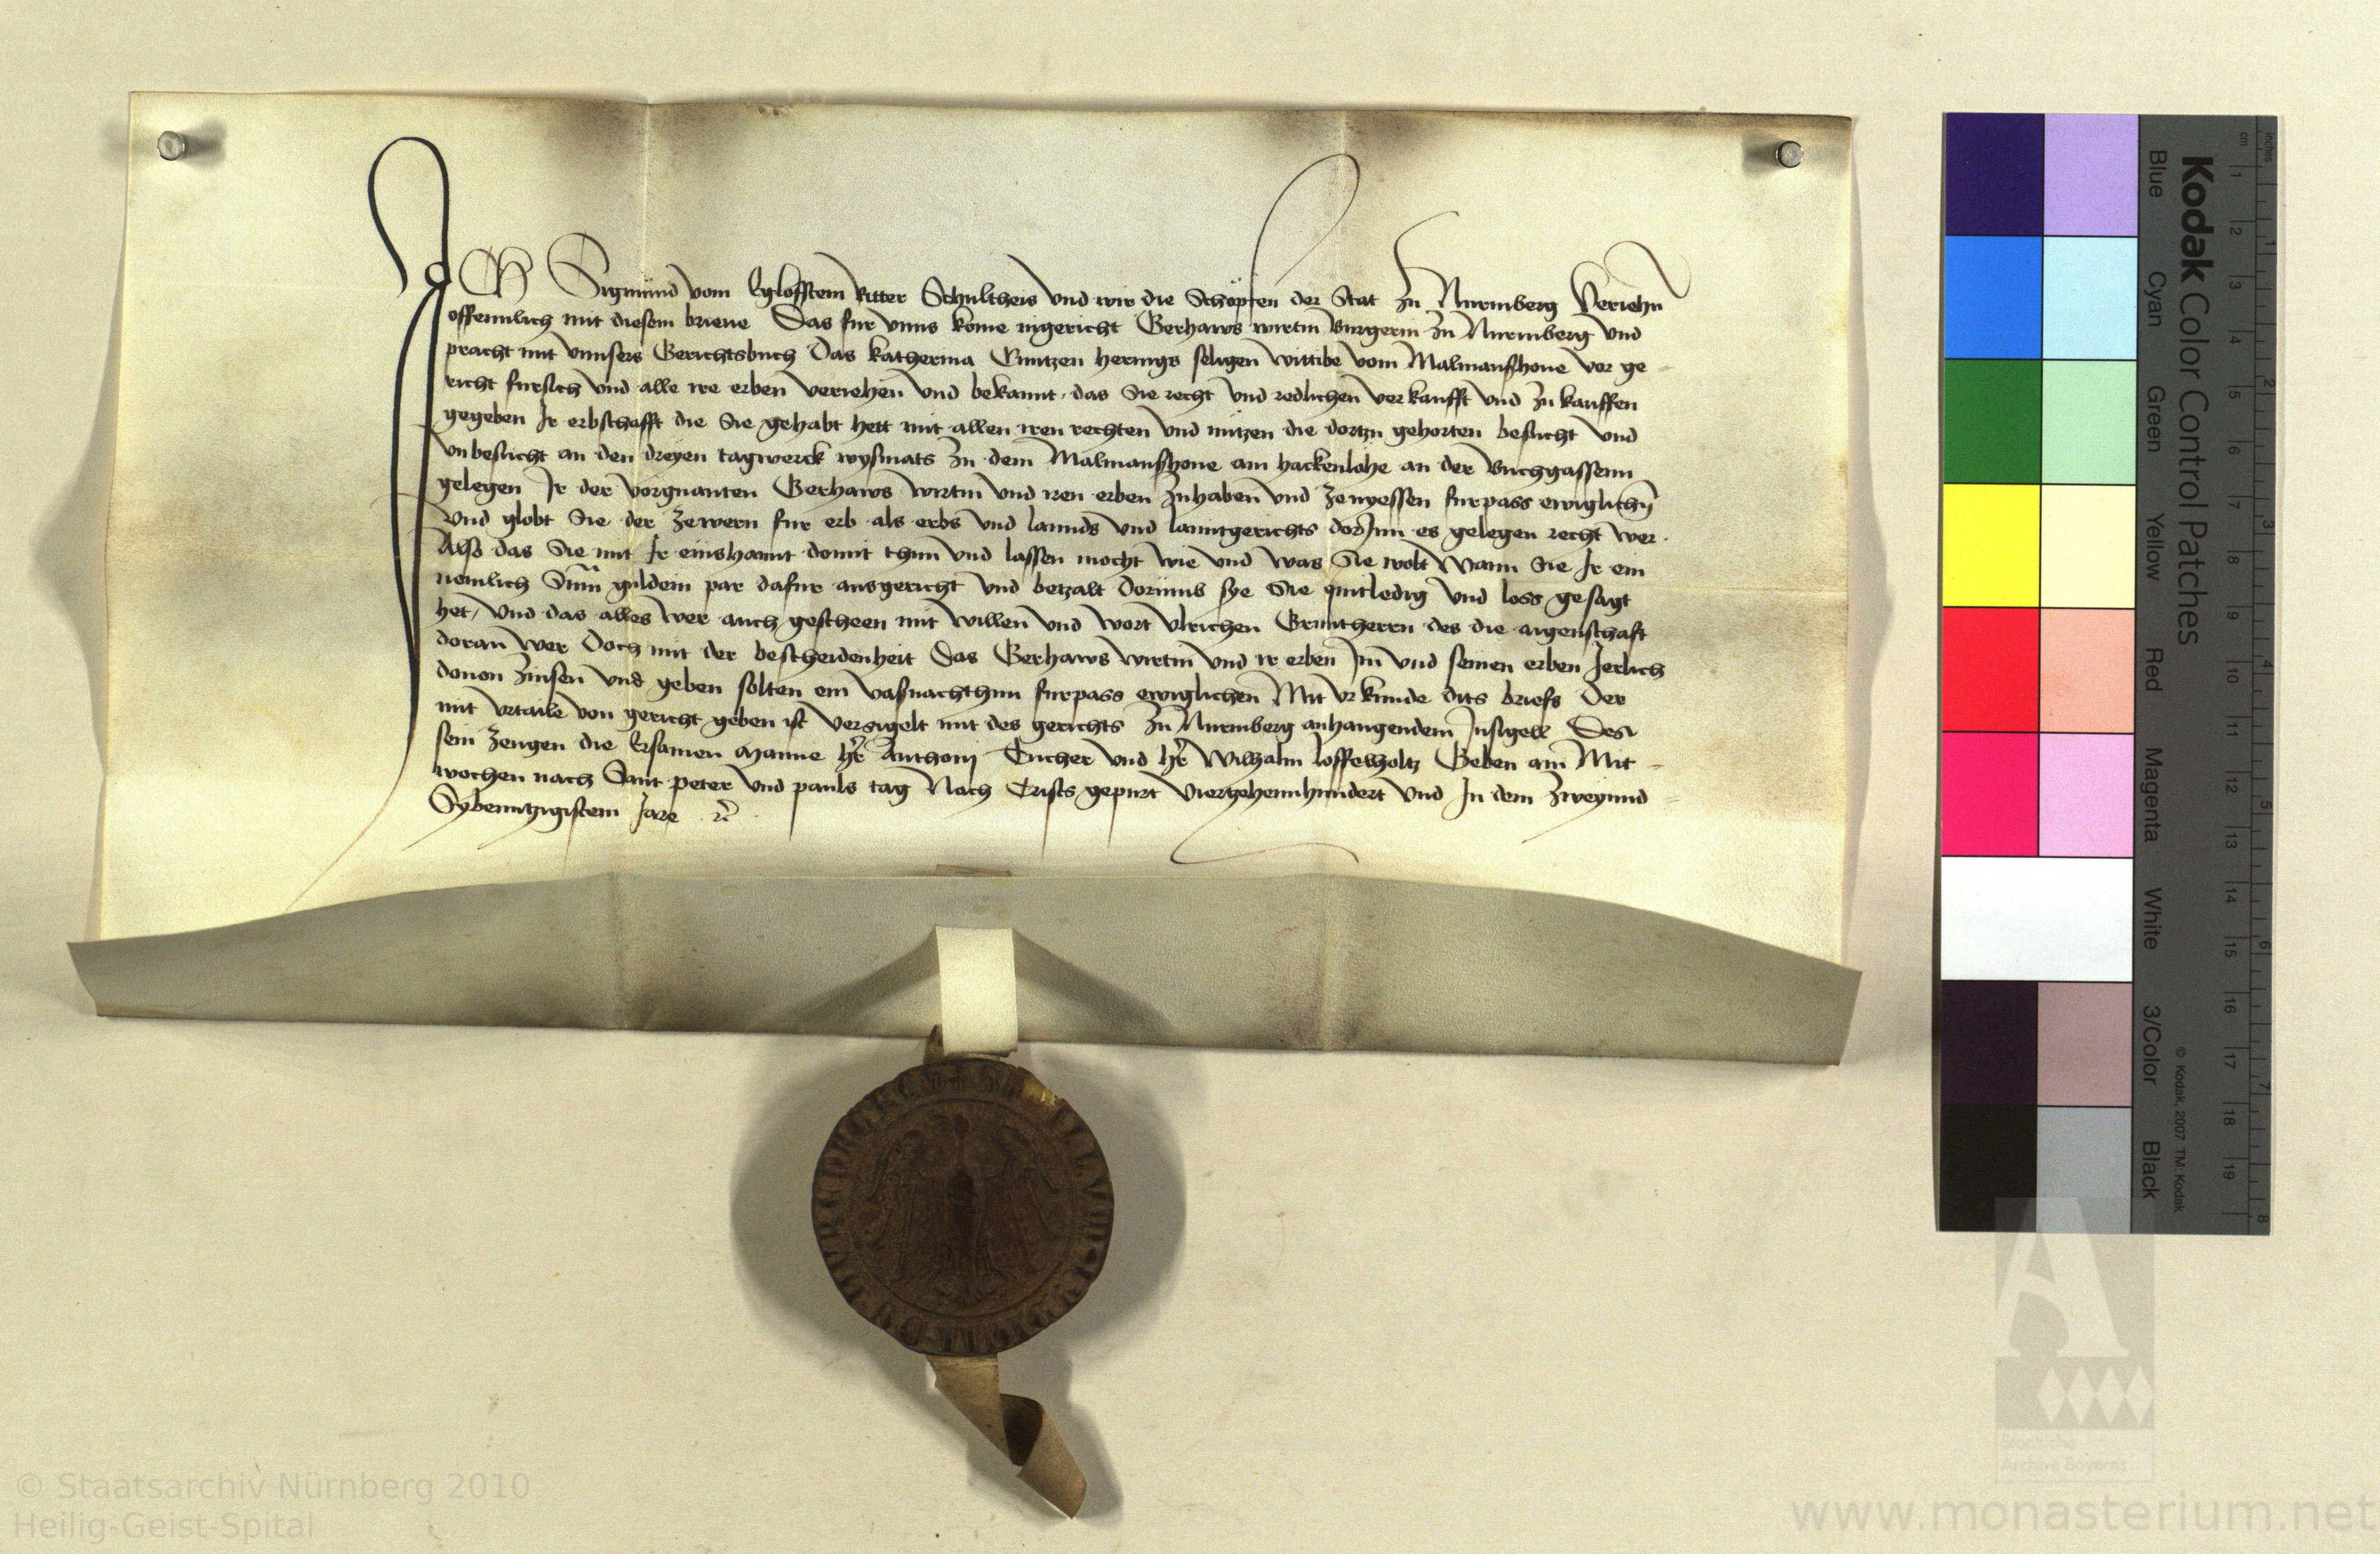 Ich Sigmund vom Eglofftein Ritter Schultheis vnd wir die Schöpfen der Stat zu Nuremberg Veriehn
offennlich mit diesem brieue Das fur vnns kome ingericht Gerhaws wirtin Burgerin zu Nuremberg vnd
pracht mit vnnsers Gerichtsbuch Das katherina Cuntzen herings seligen wittibe vom Malmanßhoue vor ge
richt fursich vnd alle ire erben veriehen vnd bekannt das Sie recht vnd redlichen verkaufft vnd zu kauffen
gegeben Ir erbschafft die Sie gehabt hett mit allen iren rechten vnd nutzen die dortzu gehorten besucht vnd
vnbesucht an den dreyen tagwerck wyßmats zu dem Malmanßhoue am hackenlohe an der Buchgassenn
gelegen Ir der vorgnanten Gerhaws wirtin vnd iren erben zuhaben vnd zenyessen furpass ewiglichn
Vnd globt Sie der zewern fur erb als erbs vnd lannds vnd lanntgerichts dorJnn es gelegen recht wer
Also das Sie mit Ir einshannt domit thun vnd lassen mocht wie vnd was Sie wolt Wann Sie Ir ein
nemlich Sum guldein par dafur ausgericht vnd betzalt dorumb sye Sie quitledig vnd loss gesagt
het, vnd das alles wer auch gescheen mit willen vnd wort Vlrichen Gruntherrn des die aigenschaft
doran wer Doch mit der bescheidenheit Das Gerhaws wirtin vnd ir erben Jm vnd seinen erben Jerlich
douon zinsen vnd geben solten ein vaßnachthun furpass ewiglichen Mit vrkunde dits briefs Der
mit vrtaile von gericht geben ist versigelt mit des gerichts zu Nuremberg anhangendem Jnsigell Des
sein zeugen die Ersamen Manne hr Anthonj Tucher vnd hr Wilhalm loffelholtz Geben am Mit
wochen nach Sant peter vnd pauls tag Nach Crists gepurt Viertzehennhundert vnd Jn dem zweyund
Sybenntzigistem Jare
Kodak Color Control Patches
Blue Cyan Green Yellow Red Magenta White 3/Color Black
© Kodak, 2007 TM: Kodak
inches 1 2 3 4 5 6 7 8
cm 1 2 3 4 5 6 7 8 9 10 11 12 13 14 15 16 17 18 19
© Staatsarchiv Nürnberg 2010
Heilig-Geist-Spital
Staatliche
Archive Bayerns
www.monasterium.net